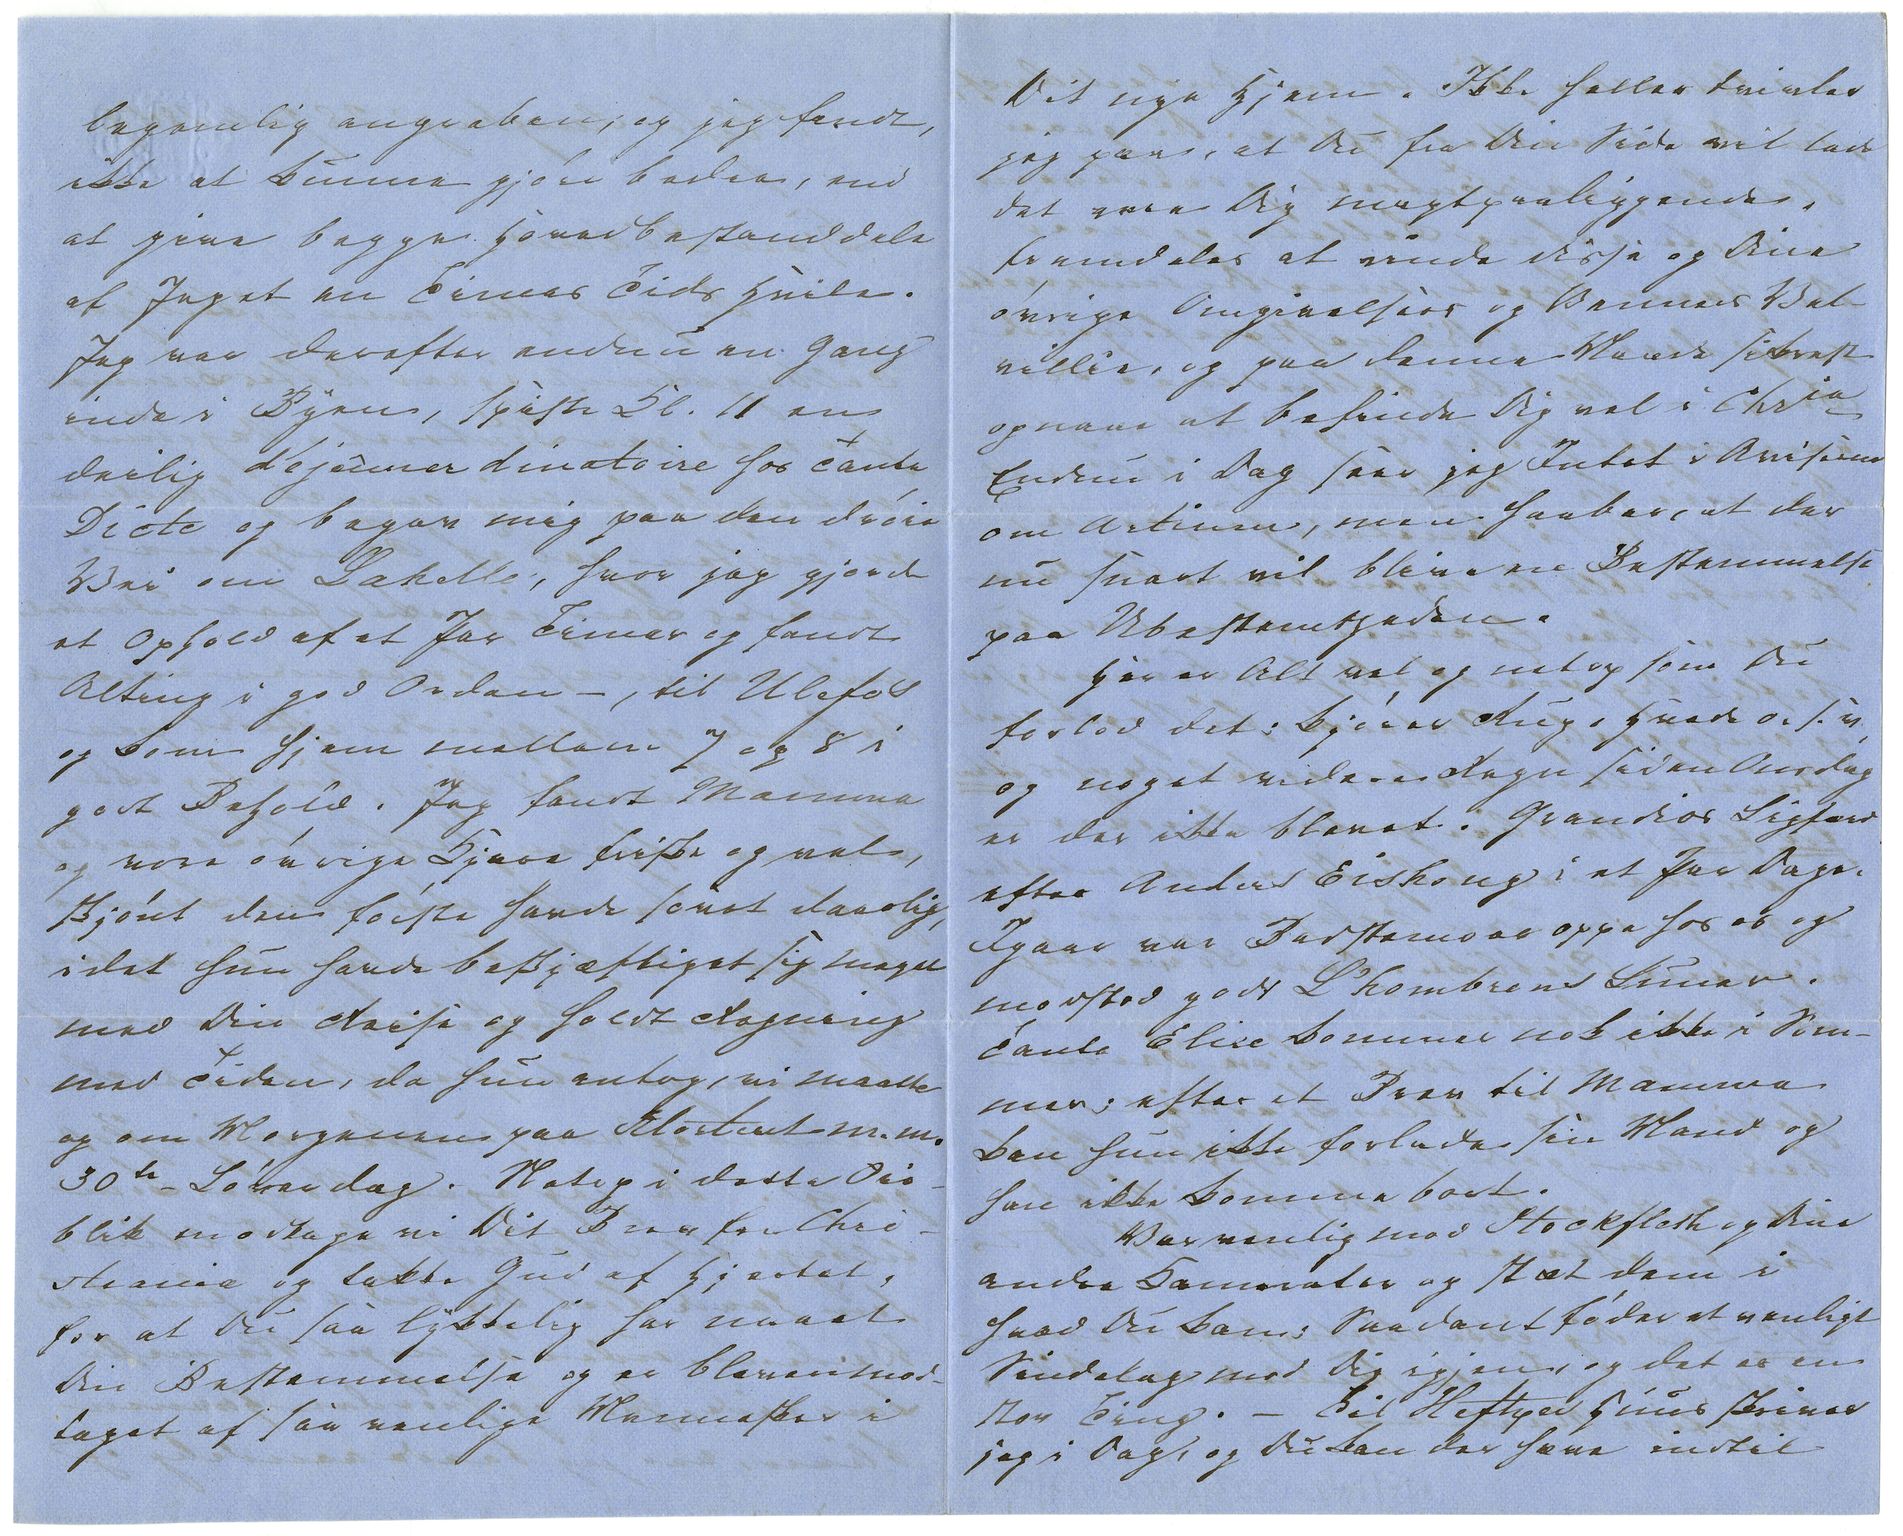 legemlig angreben, og jeg fandt,
ikke at kunne gjöre bedre, end
at give begge Hovedbestanddele
af Jeget en Times Tids Hvile.
Jeg var derefter endnu en Gang
inde i Byen, spiste Kl. 11 en
deilig dejeuner dinatoire hos Tante
Dicte og begav mig paa den dröie
Vei om Bakelle, hvor jeg gjorde
et Ophold af et Par Timer og fandt
Alting i god Orden –, til Ulefos
og kom hjem mellem 7 og 8 i
godt Behold. Jeg fandt Mamma
og vore övrige Kjære friske og vel,
skjönt den förste havde sovet daarlig,
idet hun havde beskjæftiget sig meget
med Din Reise og holdt Regning
med Tiden, da hun antog, vi maatte
og om Morgenen paa Klosteret m.m.
30te Löverdag. Netop i dette Öie-
blik modtage vi Dit Brev fra Chri-
stiania og takke Gud af Hjertet,
for at Du saa lykkelig har naaet
Din Bestemmelse og er bleven mod-
taget af saa venlige Mennesker i
Dit nye Hjem. Ikke heller tvivler
jeg paa, at Du fra Din Side vil lade
det være Dig magtpaaliggende,
fremdeles at vinde disse og Dine
övrige Omgivelsers og Venners Vel-
villie, og paa denne Maade sikkrest
opnaae at befinde Dig vel i Chria
Endnu i Dag saae jeg Intet i Aviserne
om Artium, men haaber, at der
nu snart vil blive en Bestemmelse
paa Ubestemtheden.
Her er Alt vel og netop som Du
forlod det: Kjörer Rug, Hvede o.s.v,
og noget videre Regn siden Onsdag
er der ikke blevet. Grandios Ligfærd
efter Anders Eiskong i et Par Dage.
Igaar var Bedstemoer oppe hos os og
modstod godt L'hombrens Luner.
Tante Elise kommer nok ikke i Som-
mer; efter et Brev til Mamma
kan hun ikke forlade sin Mand og
han ikke komme bort.
Vær venlig mod Stockfleth og Dine
andre Kamerater og støt dem i
hvad Du kan; Saadant föder et venligt
Sindelag mod Dig igjen, og det er en
stor Ting. – Til Heftyes Huus skriver
jeg i Dag, og Du kan der hæve indtil